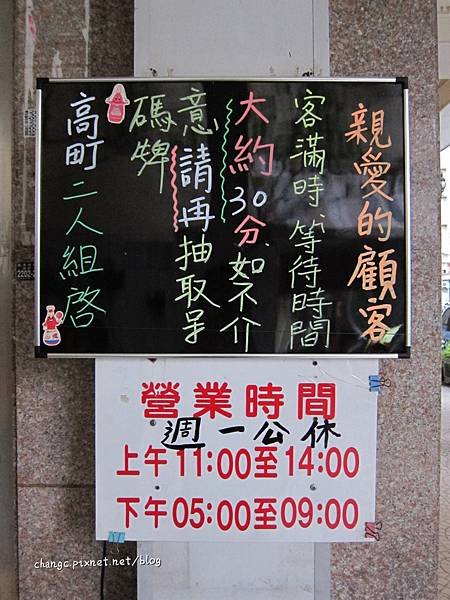 親愛的顧客
客滿時、等待時間
大約30分.如不介
意請再抽取号
碼牌
高町二人組啓
營業時間
週一公休
上午11:00至14:00
下午05:00至09:00
changc.pixnet.net/blog